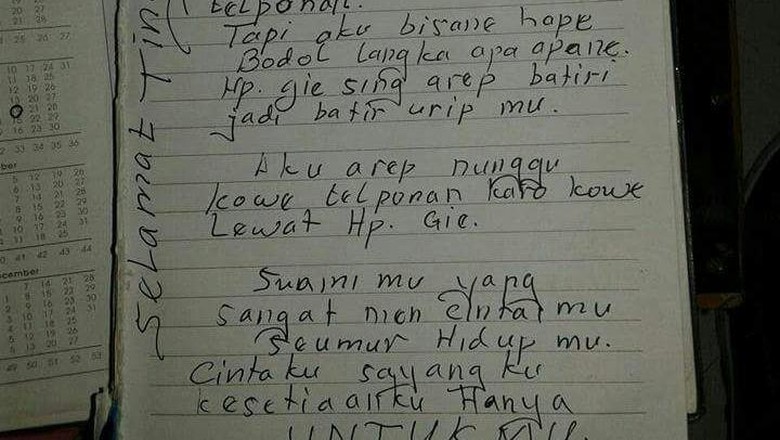 telponan.
Tapi aku bisane hape
Bodol langka apa apane.
Hp. gie sing arep batiri
jadi batir urip mu.
Aku arep nunggu
kowe telponan karo kowe
Lewat Hp. Gie.
Suami mu yang
sangat men cintai mu
Seumur Hidup mu.
Cintaku sayang ku
kesetiaanku Hanya
UNTUK MU.
Selamat Tin